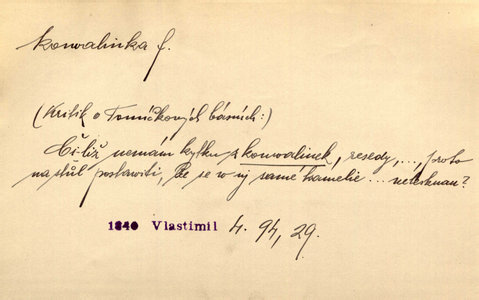 konvalinka f.
(Kritik o Tomíčkových básních:)
Či-liž nemám kytku z konvalinek, resedy, ..., proto
na stůl postaviti, že se v ný samé kamelie ... nelesknau?
1840 Vlastimil 4. 94, 29.